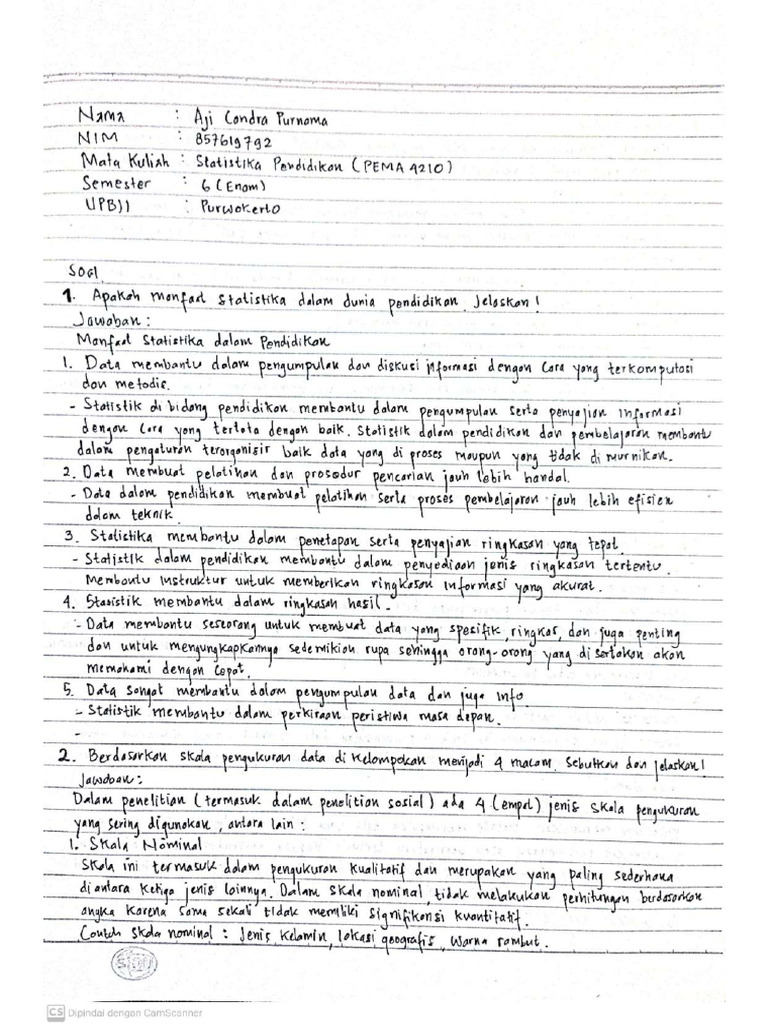 Nama : Aji Condra Purnama
NIM : 857619792
Mata Kuliah : Statistika Pendidikan (PEMA 4210)
Semester : 6 (Enam)
UPBJJ : Purwokerto
Soal
1. Apakah manfaat statistika dalam dunia pendidikan. Jelaskan!
Jawaban :
Manfaat Statistika dalam Pendidikan
1. Data membantu dalam pengumpulan dan diskusi informasi dengan cara yang terkomputasi
dan metodis.
- Statistik di bidang pendidikan membantu dalam pengumpulan serta penyajian informasi
dengan cara yang tertata dengan baik. Statistik dalam pendidikan dan pembelajaran membantu
dalam pengaturan terorganisir baik data yang di proses maupun yang tidak di murnikan.
2. Data membuat pelatihan dan prosedur pencarian jauh lebih handal.
- Data dalam pendidikan membuat pelatihan serta proses pembelajaran jauh lebih efisien
dalam teknik.
3. Statistika membantu dalam penetapan serta penyajian ringkasan yang tepat.
- Statistik dalam pendidikan membantu dalam penyediaan jenis ringkasan tertentu.
Membantu instruktur untuk memberikan ringkasan informasi yang akurat.
4. Statistik membantu dalam ringkasan hasil.
- Data membantu seseorang untuk membuat data yang spesifik, ringkas, dan juga penting
dan untuk mengungkapkannya sedemikian rupa sehingga orang-orang yang di sertakan akan
memahami dengan cepat.
5. Data sangat membantu dalam pengumpulan data dan juga info.
- Statistik membantu dalam perkiraan peristiwa masa depan.
-
2. Berdasarkan skala pengukuran data di kelompokan menjadi 4 macam. Sebutkan dan jelaskan!
Jawaban :
Dalam penelitian (termasuk dalam penelitian sosial) ada 4 (empat) jenis skala pengukuran
yang sering digunakan, antara lain :
1. Skala Nominal
Skala ini termasuk dalam pengukuran kualitatif dan merupakan yang paling sederhana
diantara ketiga jenis lainnya. Dalam skala nominal, tidak melakukan perhitungan berdasarkan
angka karena sama sekali tidak memiliki signifikansi kuantitatif.
Contoh skala nominal : Jenis kelamin, lokasi geografis, warna rambut.
SIDU
CS Dipindai dengan CamScanner